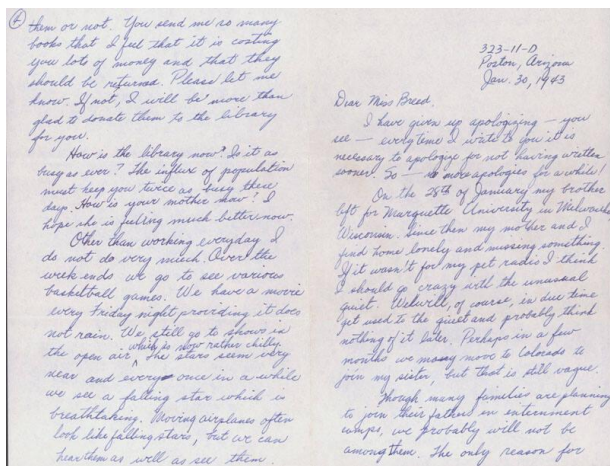 4
them or not. You send me so many
books that I feel that it is costing
you lots of money and that they
should be returned. Please let me
know. If not, I will be more than
glad to donate them to the library
for you.
How is the library now? Is it as
busy as ever? The influx of population
must keep you twice as busy these
days. How is your mother now? I
hope she is feeling much better now.
Other than working everyday I
do not do very much. Over the
week ends we go to see various
basketball games. We have a movie
every Friday night providing it does
not rain. We still go to shows in
the open air which is now rather chilly. The stars seem very
near and every once in a while
we see a falling star which is
breathtaking. Moving airplanes often
look like falling stars, but we can
hear them as well as see them.
323-11-D
Poston, Arizona
Jan. 30, 1943
Dear Miss Breed,
I have given up apologizing — you
see — everytime I write to you it is
necessary to apologize for not having written
sooner. So — no more apologies for a while!
On the 25th of January my brother
left for Marquette University in Milwaukee
Wisconsin. Since then my mother and I
find home lonely and missing something
If it wasn't for my pet radio I think
I should go crazy with the unusual
quiet. We will, of course, in due time
get used to the quiet and probably think
nothing of it later. Perhaps in a few
months we may move to Colorado to
join my sister, but that is still vague.
Though many families are planning
to join their fathers in internment
camps, we probably will not be
among them. The only reason for